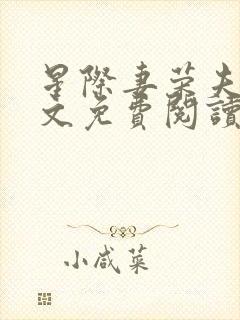 星際妻榮夫
文免費閱讀
小咸菜